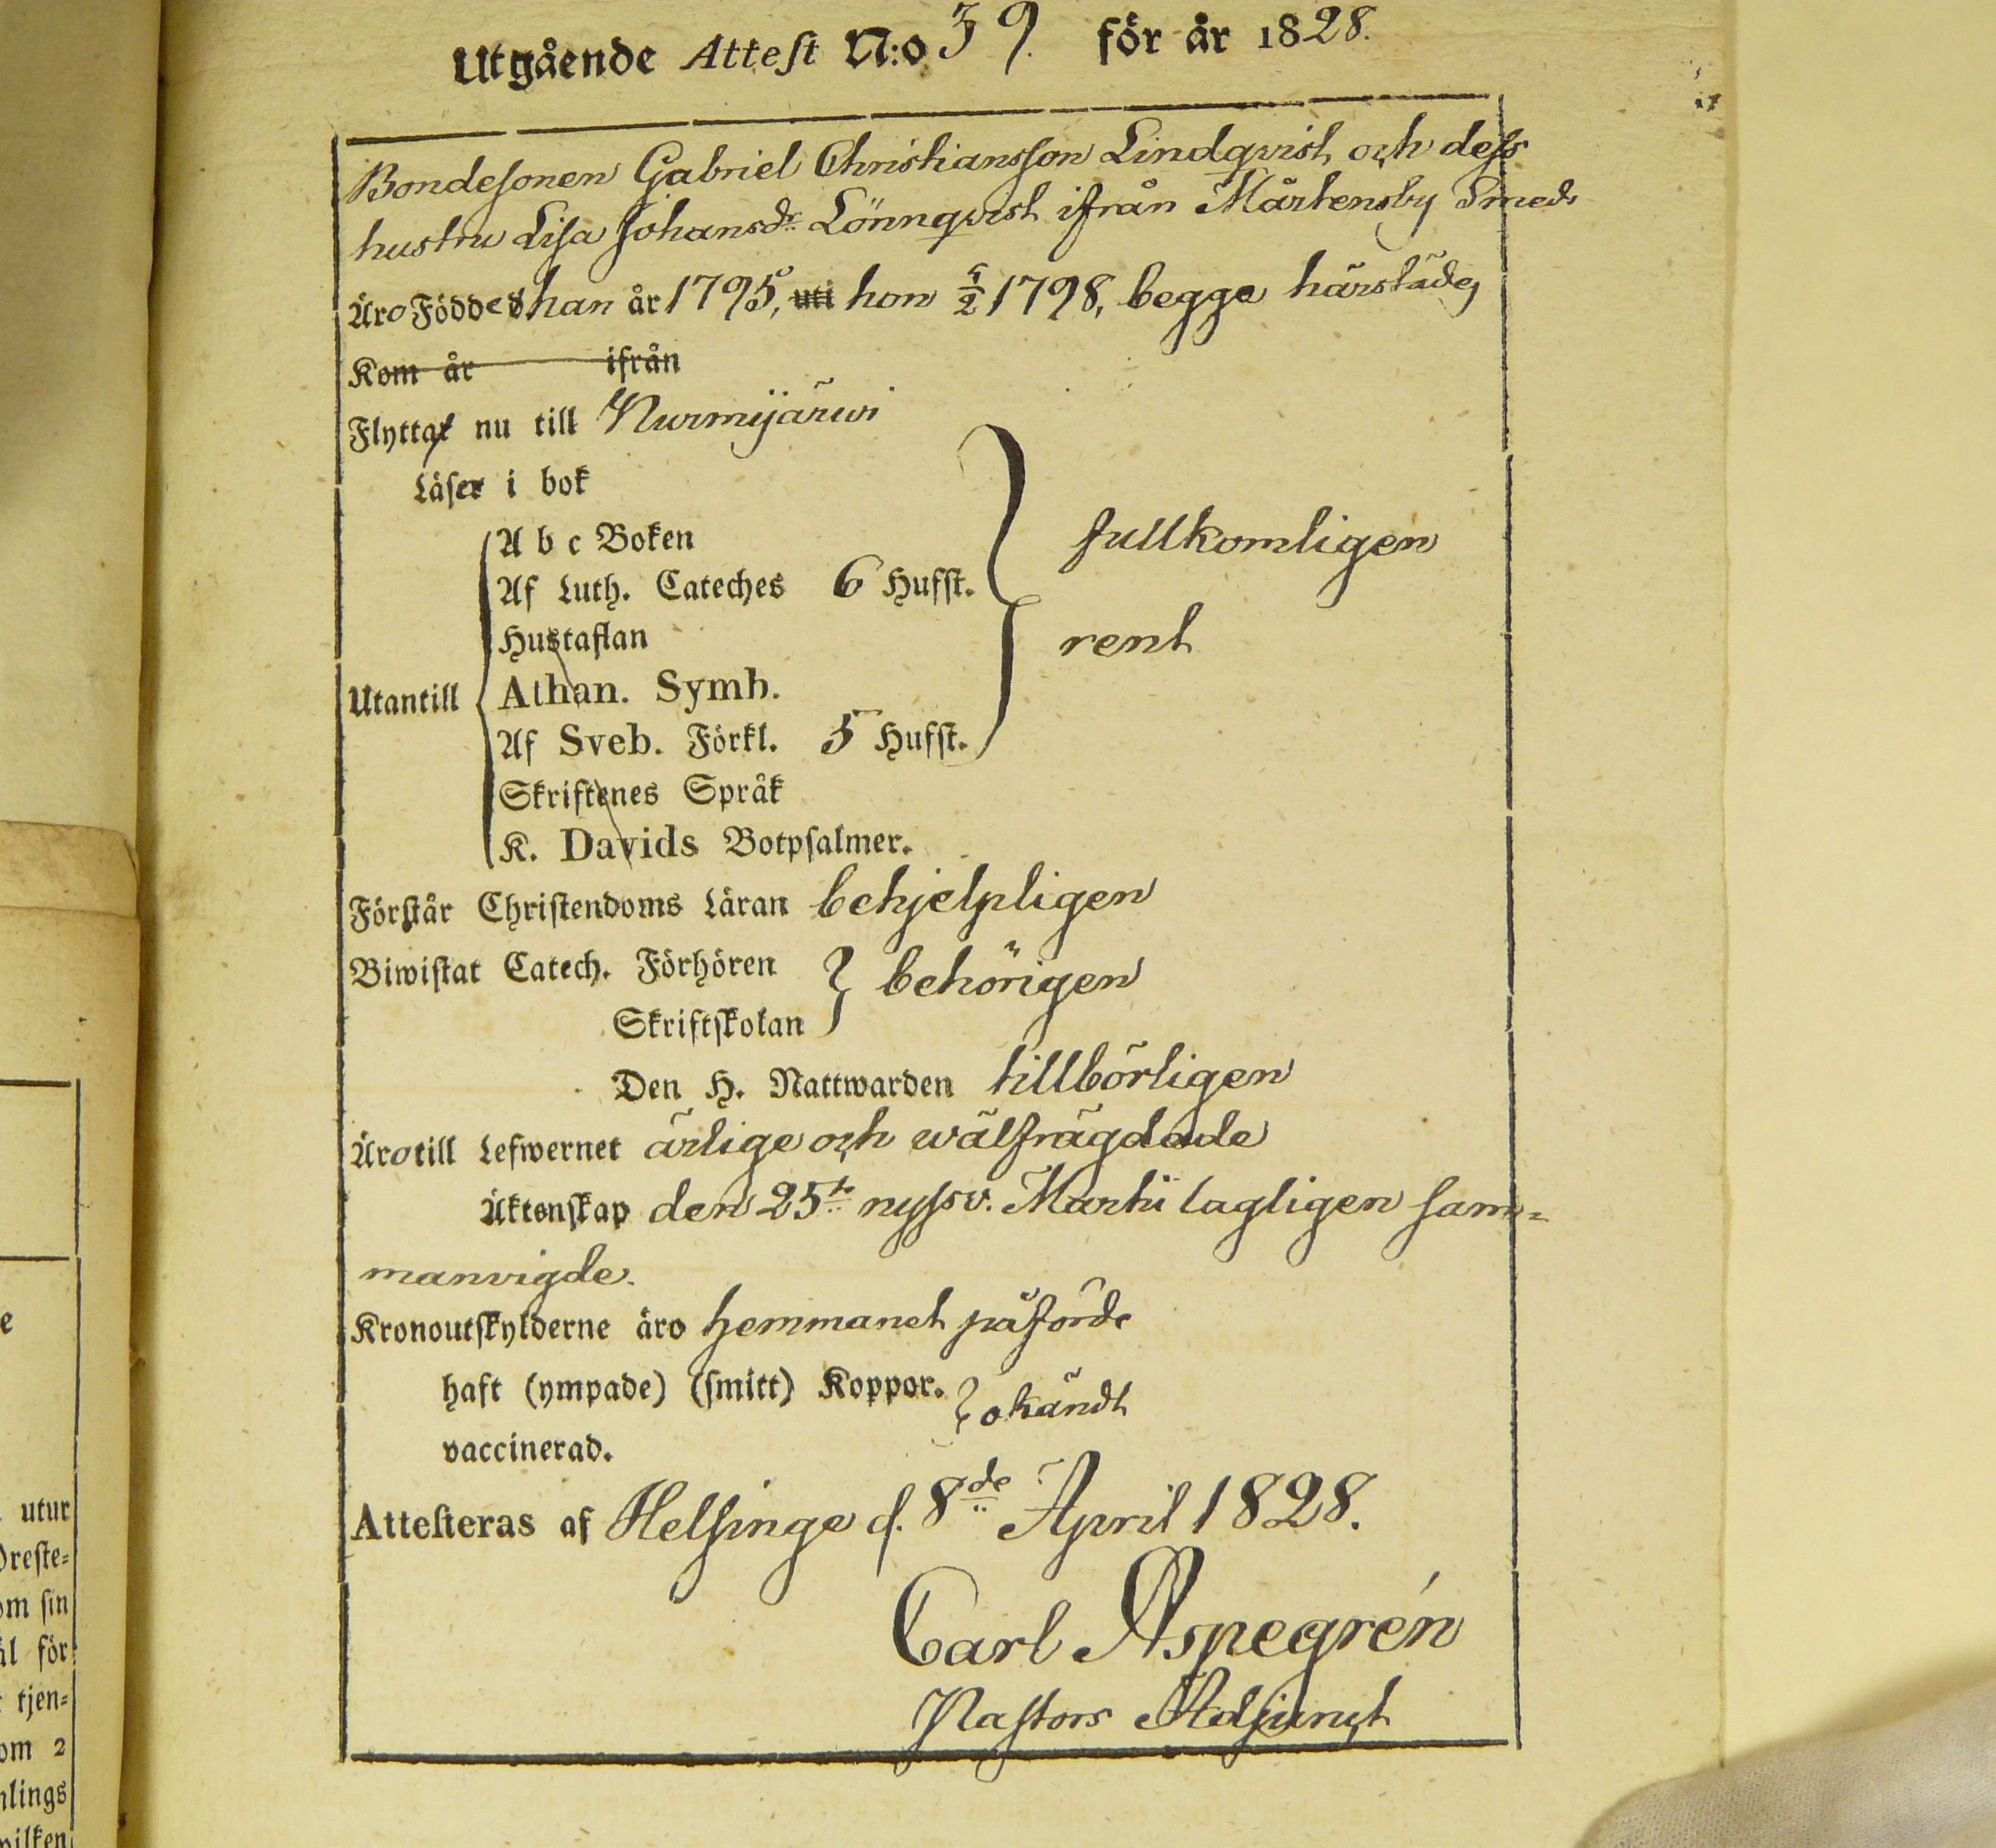 Utgående Attest N:o 39. för år 1828.
Bondesonen Gabriel Christiansson Lindqvist och dess
hustru Lisa Johansdr Lönnqvist ifrån Mårtensby Smeds
Äro Födde han år 1795, uti hon 5/2 1798, begge härstädes
Kom år ifrån
Flytta nu till Nurmijärwi
Läser i bok
A b c Boken
fullkomligen
Af Luth. Cateches 6 Hufst.
Hustaflan
rent
Utantill
Athan. Symb.
Af Sveb. Förkl. 5 Hufst.
Skriftenes Språk
K. Davids Botpsalmer.
Förstår Christendoms Läran behjelpligen
Biwistat Catech. Förhören } behörigen
Skriftskolan
Den H. Nattwarden tillbörligen
Äro till Lefwernet ärlige och wälfrägdade
Äktenskap den 25te nyssv. Martii lagligen sam-
manvigde.
Kronoutskylderne äro hemmanet påförde
haft (ympade) (smitt) Koppor. } okändt
vaccinerad.
Attesteras af Helsinge d. 8de April 1828.
Carl Aspegrén
Pastors Adjunct
e
utur
Oreste=
om sin
äl för
tjen=
om 2
mlings
wilken